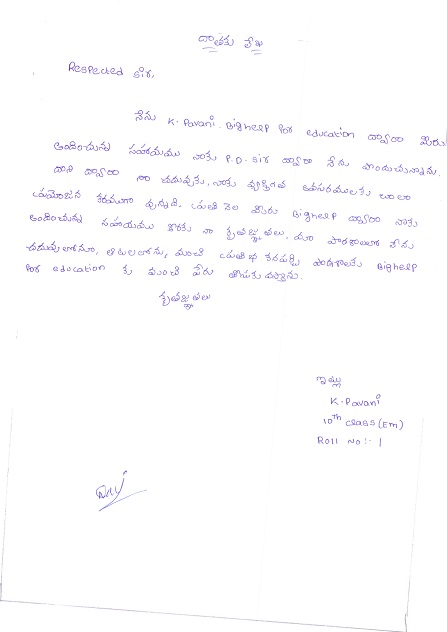 దాతకు లేఖ
Respected Sir,
నేను K. Pavani. Bighelp for education ద్వారా మీరు
అందించుచున్న సహాయము నాకు P.D. Sir ద్వారా నేను పొందుచున్నాను.
దాని ద్వారా నా చదువుకు, నాకు వ్యక్తిగత అవసరములకు చాలా
ప్రయోజన కరముగా వున్నది. ప్రతి నెల మీరు Bighelp ద్వారా నాకు
అందించుచున్న సహాయము కొరకు నా కృతజ్ఞతలు. మా పాఠశాలలో నేను
చదువులోనూ, ఆటలలోను, మంచి ప్రతిభ కనపర్చి పాఠశాలకు Bighelp
for education కు మంచి పేరు తీసుకు వస్తాను.
కృతజ్ఞతలు
ఇట్లు
K. Pavani
10th class (EM)
Roll No :- 1